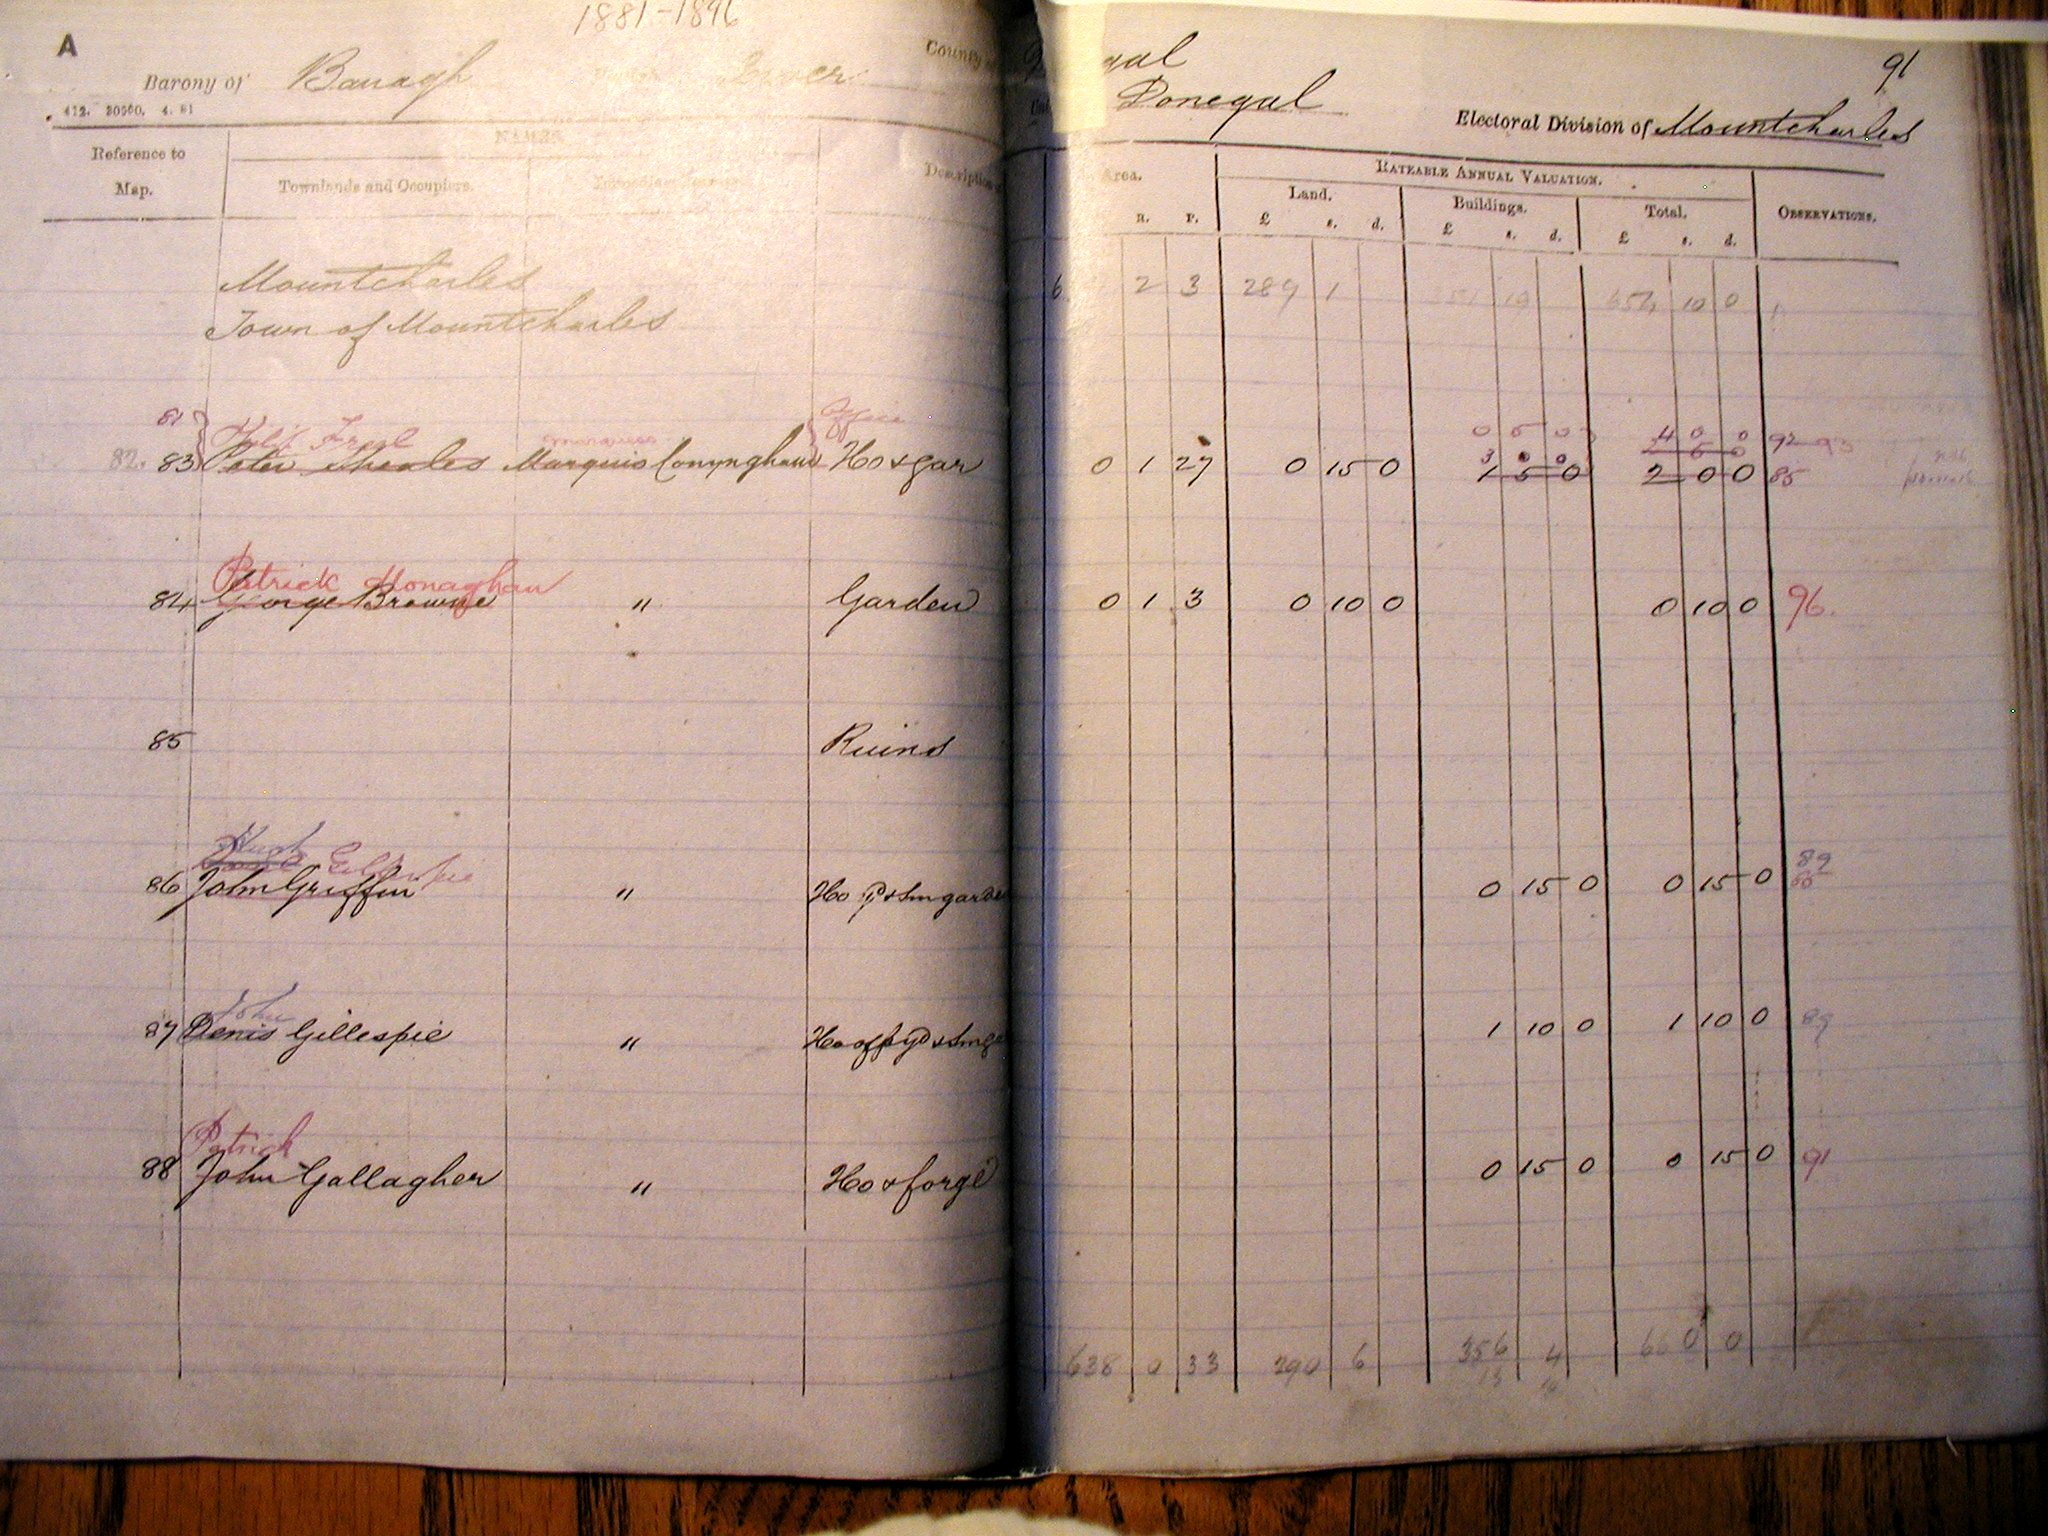 1881-1896
A
Barony of Banagh
County
412. 20500. 4. 81
Reference to Map.
NAMES.
Townlands and Occupiers.
Description
91
Donegal
Electoral Division of Mountcharles
Area.
RATEABLE ANNUAL VALUATION.
Land.
Buildings.
Total.
OBSERVATIONS.
R. P. £ s. d. £ s. d. £ s. d.
Mountcharles
2 3 289 1 10 0
Town of Mountcharles
81
Office
4 0 0 92
Marquess
3 0 0
82. 83 Peter Marquis Conyngham Ho & gar 0 1 27 0 15 0 1 5 0 2 0 0 85
Patrick Monaghan
84 George Browne " Garden 0 1 3 0 10 0 0 10 0 96.
85 Ruins
Hugh
Gillespie
89
86 John Griffin " Ho yd & sm garden 0 15 0 0 15 0
John
87 Denis Gillespie " Ho off yd & sm g 1 10 0 1 10 0 89
Patrick
88 John Gallagher " Ho & forge 0 15 0 0 15 0 91
638 0 33 290 6 356 4 660 0